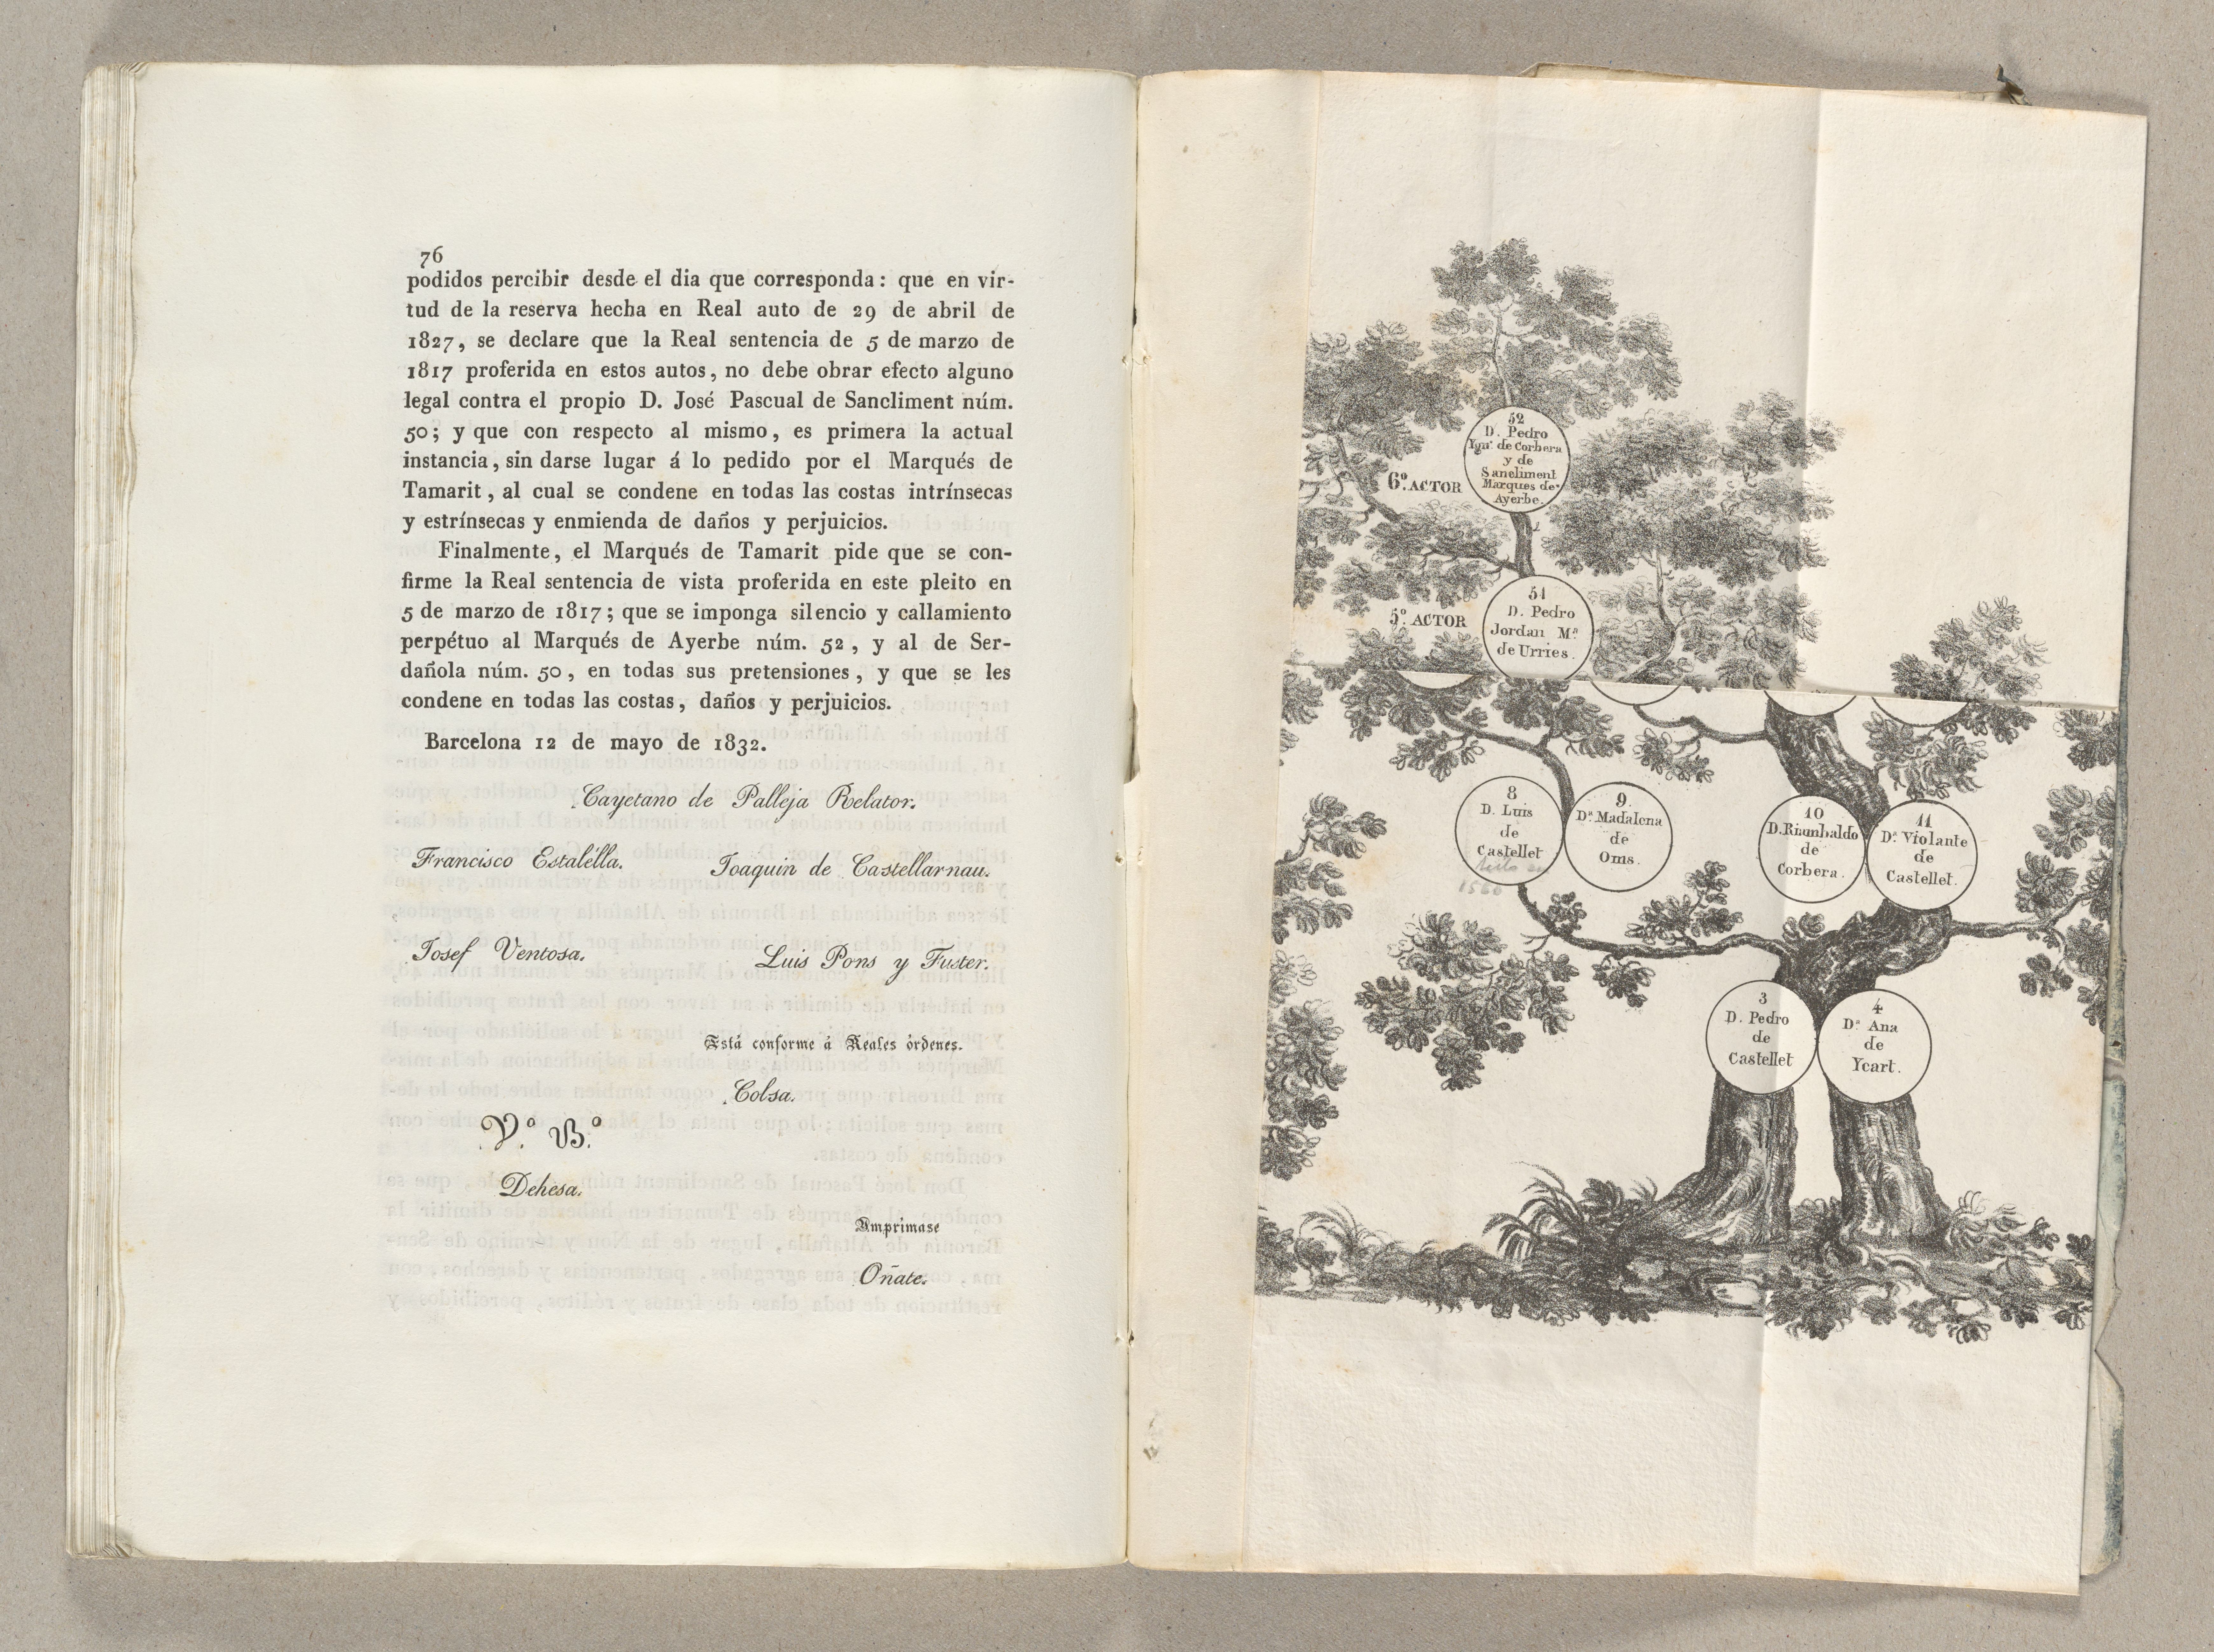 76
podidos percibir desde el dia que corresponda: que en vir-
tud de la reserva hecha en Real auto de 29 de abril de
1827, se declare que la Real sentencia de 5 de marzo de
1817 proferida en estos autos, no debe obrar efecto alguno
legal contra el propio D. José Pascual de Sancliment núm.
50; y que con respecto al mismo, es primera la actual
instancia, sin darse lugar á lo pedido por el Marqués de
Tamarit, al cual se condene en todas las costas intrínsecas
y estrínsecas y enmienda de daños y perjuicios.
Finalmente, el Marqués de Tamarit pide que se con-
firme la Real sentencia de vista proferida en este pleito en
5 de marzo de 1817; que se imponga silencio y callamiento
perpétuo al Marqués de Ayerbe núm. 52, y al de Ser-
dañola núm. 50, en todas sus pretensiones, y que se les
condene en todas las costas, daños y perjuicios.
Barcelona 12 de mayo de 1832.
Cayetano de Palleja Relator.
Francisco Estalélla.
Joaquin de Castellarnau.
Josef Ventosa.
Luis Pons y Fuster.
Está conforme á Reales órdenes.
Colsa.
V.º B.º
Dehesa.
Imprímase
Oñate.
52
D. Pedro
Ygn.º de Corbera
y de
Sancliment
Marques de
Ayerbe.
6.º ACTOR
51
D. Pedro
Jordan M.ª
de Urries.
5.º ACTOR
8
D. Luis
de
Castellet
9
D.ª Madalena
de
Oms.
10
D. Riambaldo
de
Corbera.
11
D.ª Violante
de
Castellet.
3
D. Pedro
de
Castellet
4
D.ª Ana
de
Ycart.